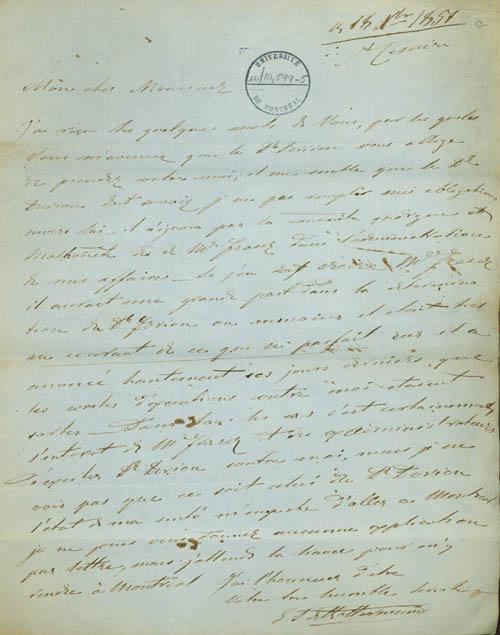 1851
St Césaire
UNIVERSITÉ
u/10,599-5
DE MONTRÉAL
Mon cher Monsieur
J'ai reçu les quelques mots de Vous, par les quels
Vous m'annoncez que le Dr Dorion vous oblige
de procéder contre moi, il me semble que le Dr
Dorion doit savoir je n'ai pas remplis mes obligations
envers lui il n'ignore pas la conduite indigne et
Malhonnête de Mr Fraser dans l'administration
de mes affaires Si j'en dois croire Mr Fraser
il aurait une grande part dans la détermina
tion du Dr Dorion ou au moins il était très
au courant de ce qui se passait car il a
annoncé hautement ces jours derniers que
les ordres d'exécutions contre moi étaient
sortis Dans tous les cas c'est certainement
l'intérêt de Mr Fraser et des administrateurs
d'exciter Dr Dorion contre moi, mais je ne
vois pas que ce soit celui de Dr Dorion
l'état de ma santé m'empêche d'aller à Montréal
je ne peux vous donner aucune explication
par lettre, mais j'attends la hâve pour m'y
rendre à Montréal J'ai l'honneur d'être
Votre très humble